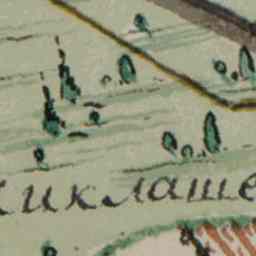 иклаше